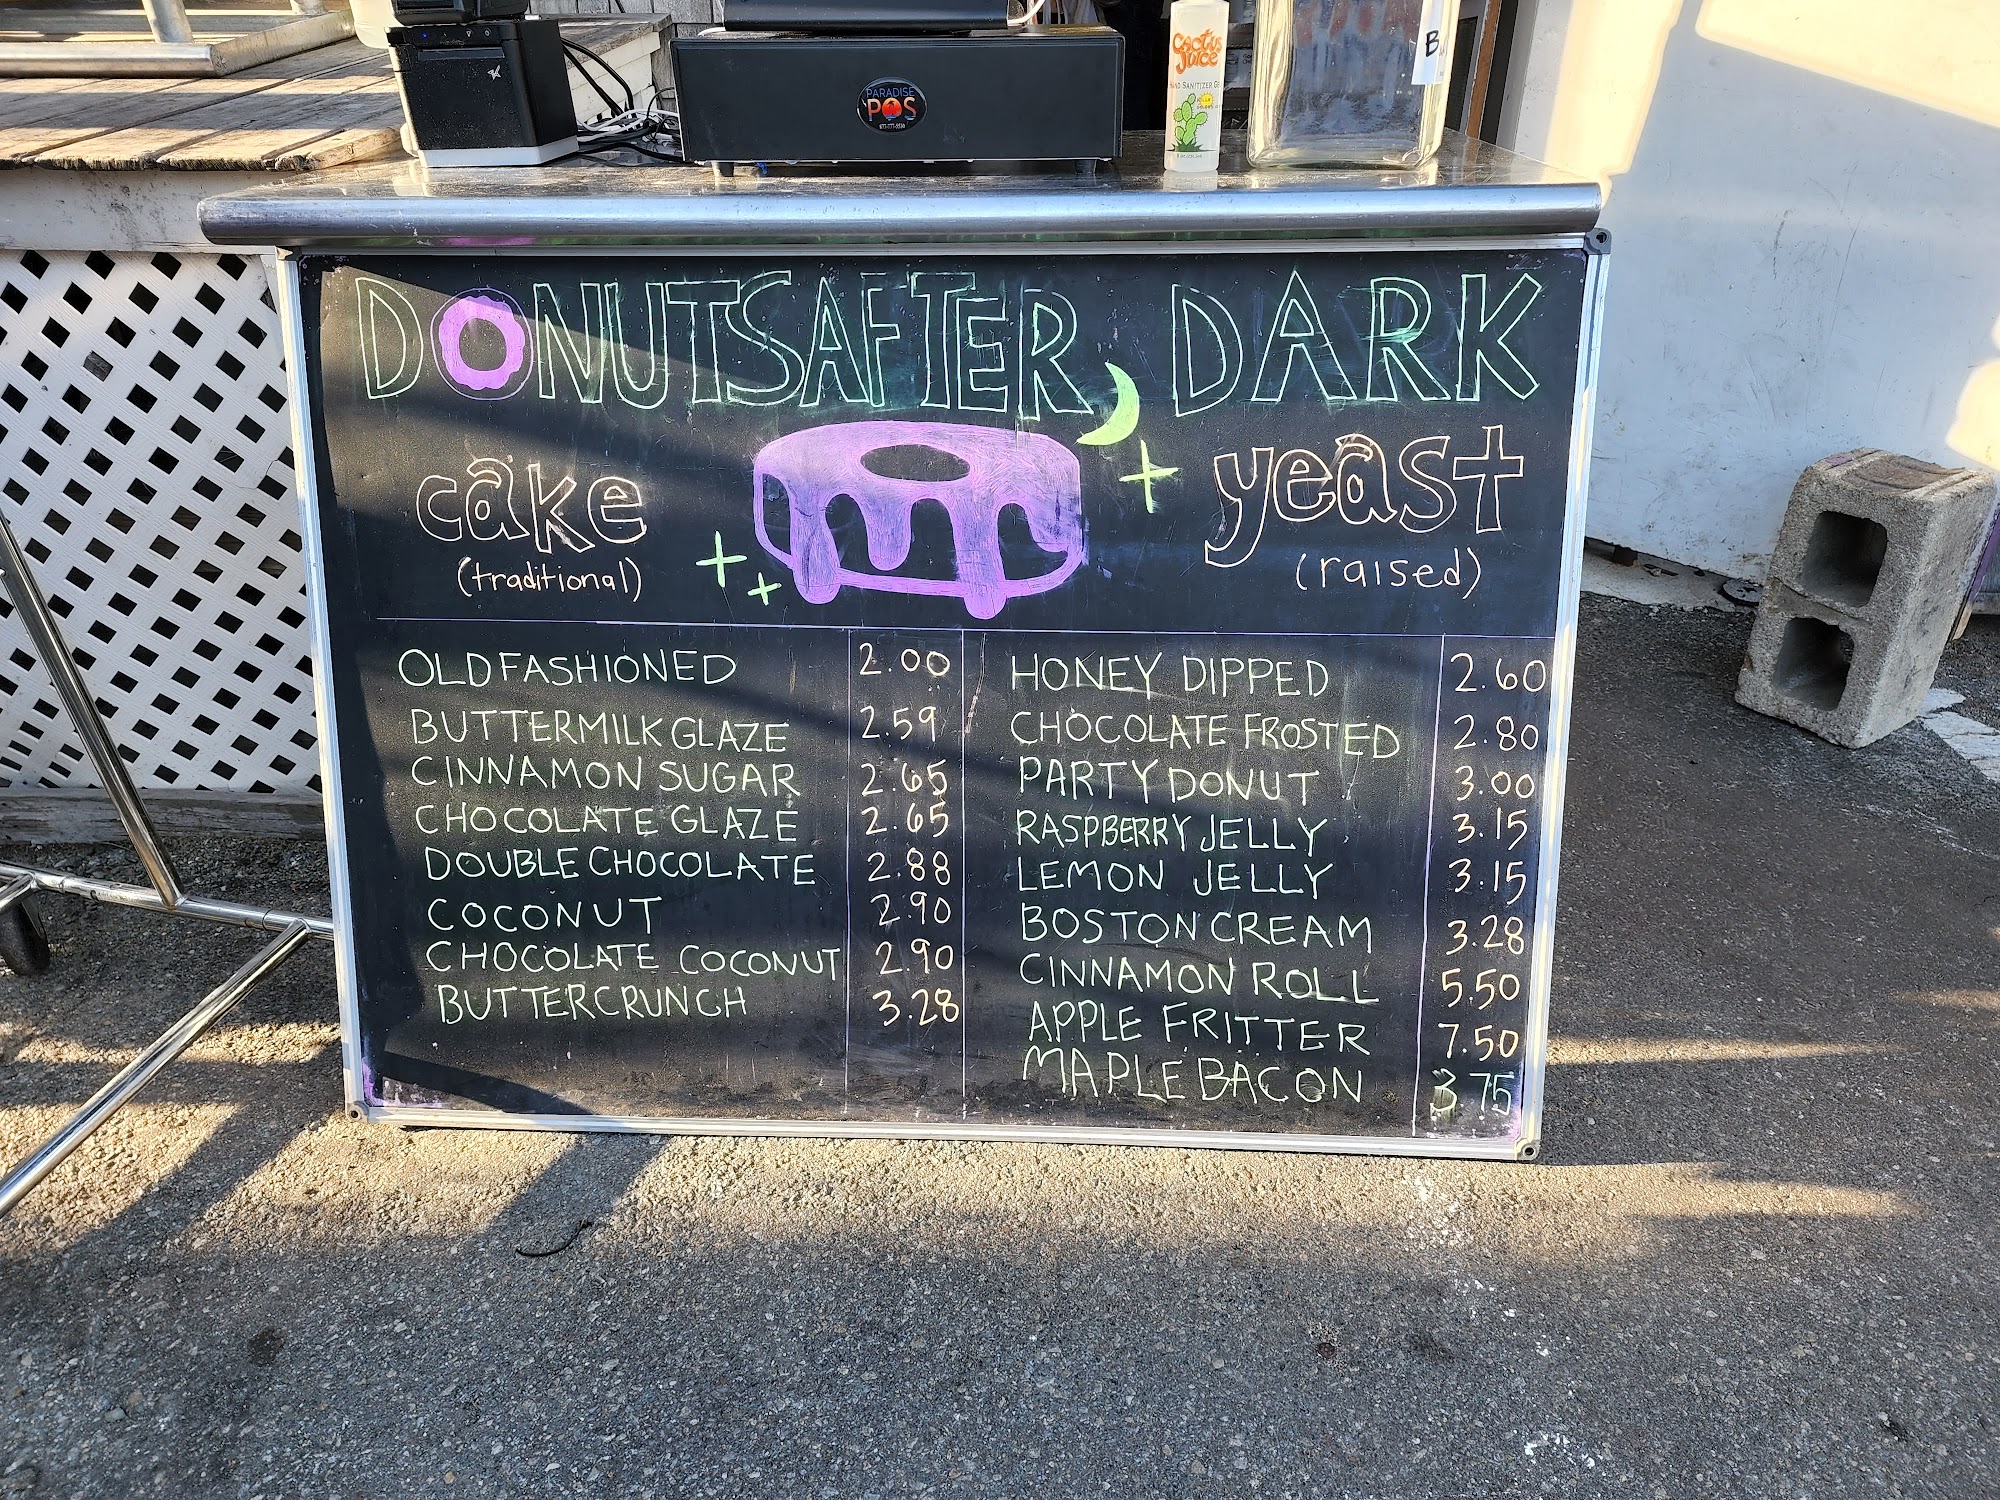 PARADISE
POS
877-777-5530
Cactus
Juice
HAND SANITIZER GEL
B
DONUTS AFTER DARK
cake
(traditional)
yeast
(raised)
OLD FASHIONED 2.00
BUTTERMILK GLAZE 2.59
CINNAMON SUGAR 2.65
CHOCOLATE GLAZE 2.65
DOUBLE CHOCOLATE 2.88
COCONUT 2.90
CHOCOLATE COCONUT 2.90
BUTTERCRUNCH 3.28
HONEY DIPPED 2.60
CHOCOLATE FROSTED 2.80
PARTY DONUT 3.00
RASPBERRY JELLY 3.15
LEMON JELLY 3.15
BOSTON CREAM 3.28
CINNAMON ROLL 5.50
APPLE FRITTER 7.50
MAPLE BACON 3.75